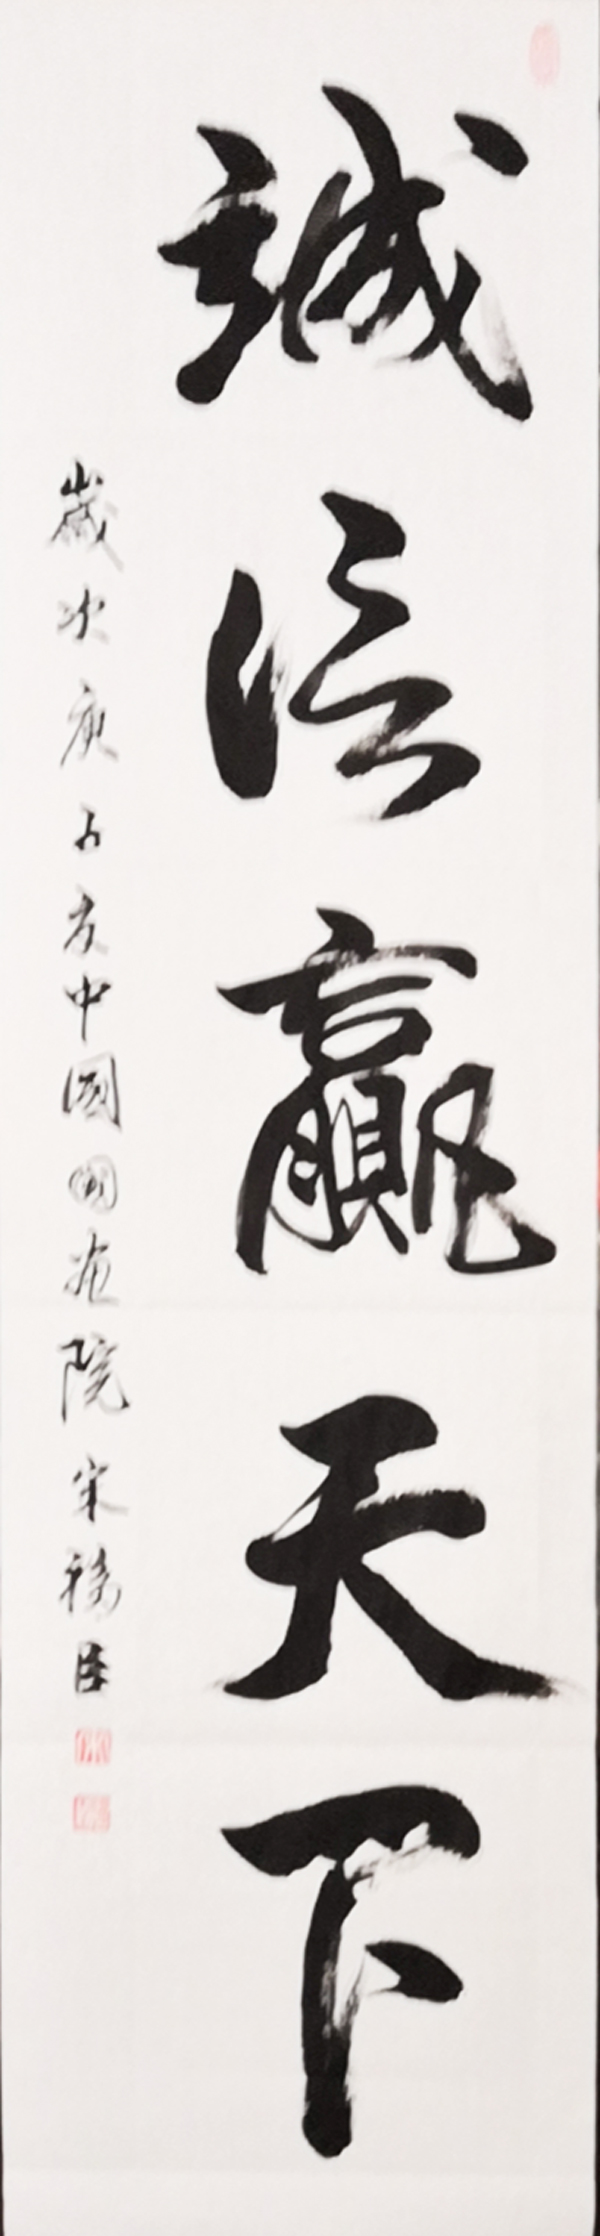 誠信贏天下
歲次庚子友中國國畫院宋福臣